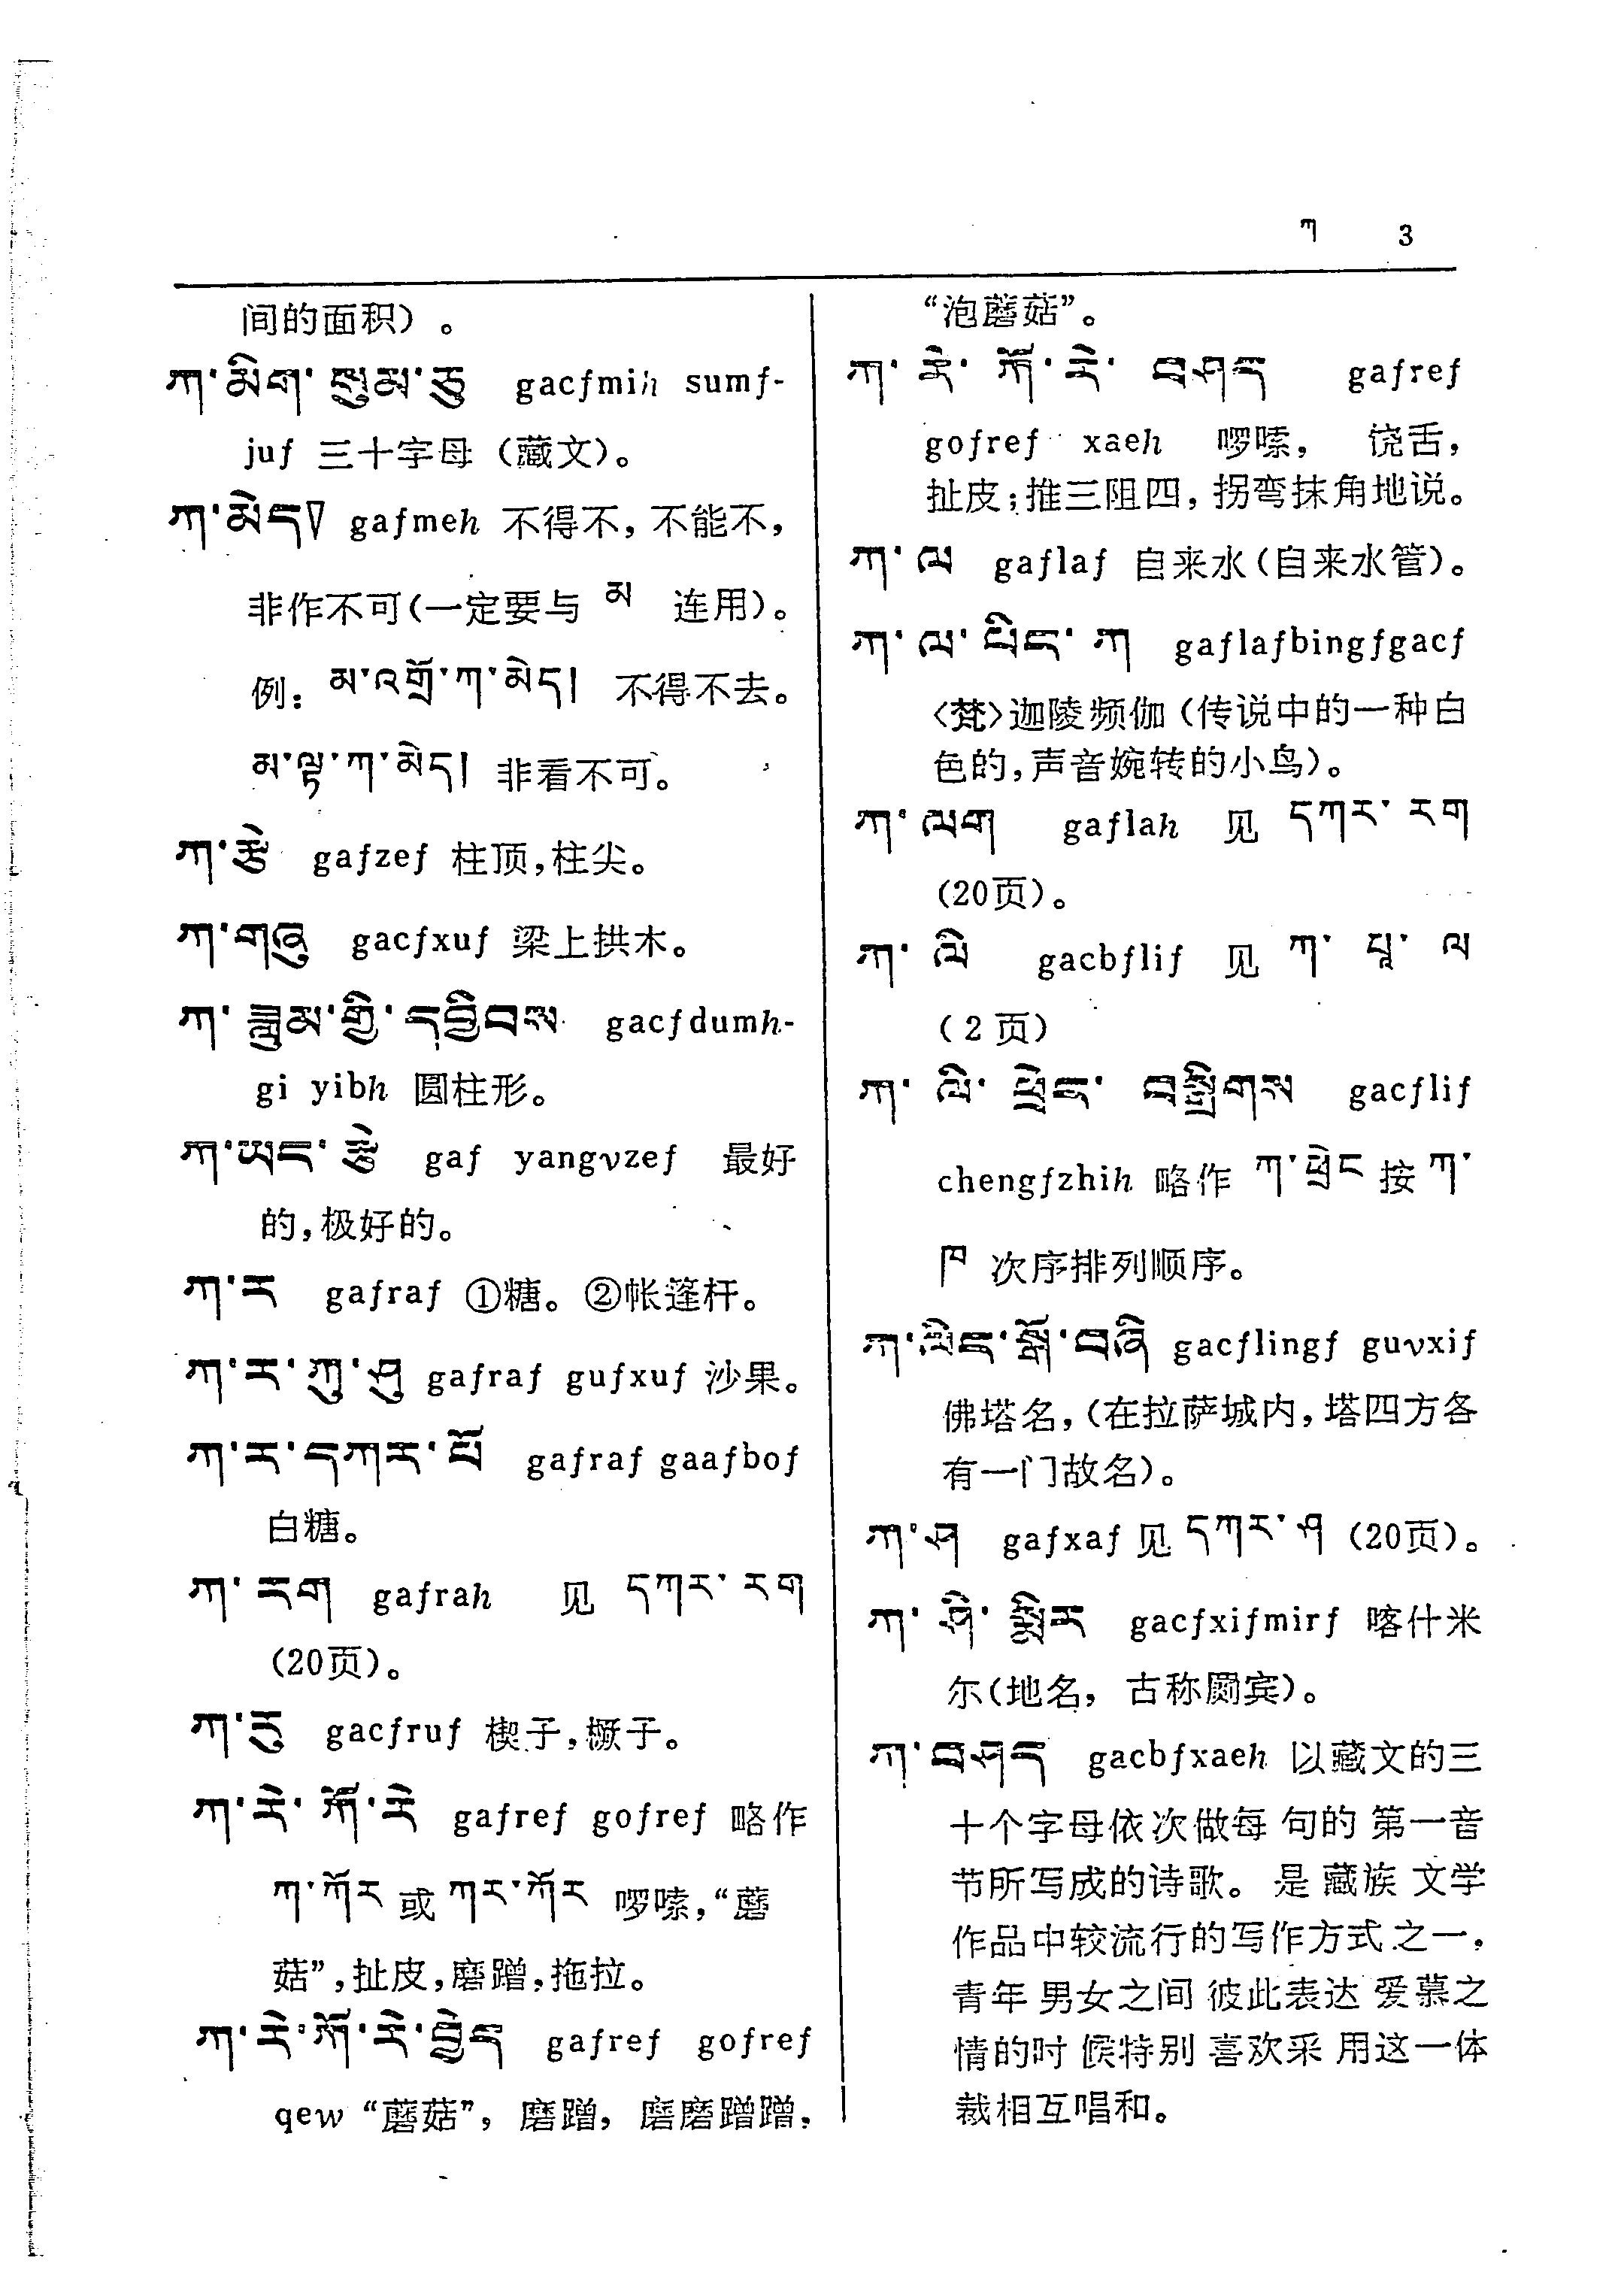 ཀ 3
间的面积）。
ཀ་མིག་སུམ་ཅུ gacfmih sumf-
juf 三十字母（藏文）。
ཀ་མེད∇ gafmeh 不得不，不能不，
非作不可（一定要与 མ 连用）。
例：མ་འགྲོ་ཀ་མེད། 不得不去。
མ་ལྟ་ཀ་མེད། 非看不可。
ཀ་རྩེ gafzef 柱顶，柱尖。
ཀ་གཞུ gacfxuf 梁上拱木。
ཀ་ཟླུམ་གྱི་དབྱིབས gacfdumh-
gi yibh 圆柱形。
ཀ་ཡང་རྩེ gaf yangvzef 最好
的，极好的。
ཀ་ར gafraf ①糖。②帐篷杆。
ཀ་ར་ཀུ་ཤུ gafraf gufxuf 沙果。
ཀ་ར་དཀར་པོ gafraf gaafbof
白糖。
ཀ་རག gafrah 见 དཀར་རག
（20页）。
ཀ་རུ gacfruf 楔子，橛子。
ཀ་རེ་ཀོ་རེ gafref gofref 略作
ཀ་ཀོར 或 ཀར་ཀོར 啰嗦，“蘑
菇”，扯皮，磨蹭，拖拉。
ཀ་རེ་ཀོ་རེ་བྱེད gafref gofref
qew “蘑菇”，磨蹭，磨磨蹭蹭，
“泡蘑菇”。
ཀ་རེ་ཀོ་རེ་བཤད gafref
gofref xaeh 啰嗦，饶舌，
扯皮；推三阻四，拐弯抹角地说。
ཀ་ལ gaflaf 自来水（自来水管）。
ཀ་ལ་པིང་ཀ gaflafbingfgacf
〈梵〉迦陵频伽（传说中的一种白
色的，声音婉转的小鸟）。
ཀ་ལག gaflah 见 དཀར་རག
（20页）。
ཀ་ལི gacbflif 见 ཀ་པཱ་ལ
（2页）
ཀ་ལི་ཕྲེང་བསྒྲིགས gacflif
chengfzhih 略作 ཀ་ཕྲེང 按 ཀ་
ཁ 次序排列顺序。
ཀ་ལིང་སྒོ་བཞི gacflingf guvxif
佛塔名，（在拉萨城内，塔四方各
有一门故名）。
ཀ་ཤ gafxaf 见 དཀར་ཤ （20页）。
ཀ་ཤི་སྨིར gacfxifmirf 喀什米
尔（地名，古称罽宾）。
ཀ་བཤད gacbfxaeh 以藏文的三
十个字母依次做每句的第一音
节所写成的诗歌。是藏族文学
作品中较流行的写作方式之一，
青年男女之间彼此表达爱慕之
情的时候特别喜欢采用这一体
裁相互唱和。